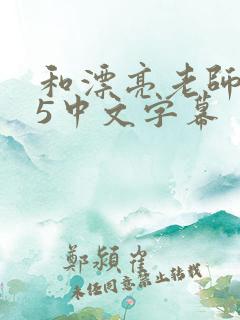 和漂亮老師
5中文字幕
鄭潁崔
未经同意禁止转载